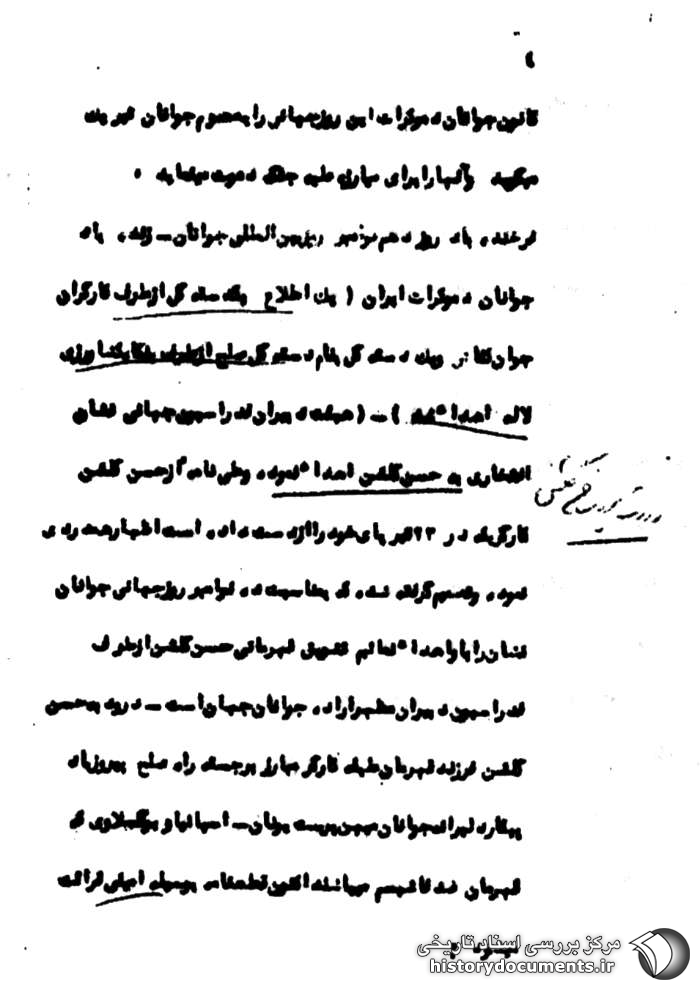 کانون جوانان دموکرات این روز جهانی را به عموم جوانان تبریک
میگوید وآنهارا برای مبارزه علیه جنگ دعوت مینماید ۰
فرخنده باد روز دهم نوامبر روز بین المللی جوانان ــ زنده باد
جوانان دموکرات ایران ( یک اطلاع یکدسته گل از طرف کارگران
جوان ویک دسته گل بنام دسته گل صلح از طرف
لاله اهداء شد ) ــ ( هیئت دبیران فدراسیون جهانی نشان
افتخاری به حسن گلشن اهداء نموده وطی نامه از حسن گلشن
کارگریکه در ۲۳ تیر پای خود را از دست داده است اظهار همدردی
نموده وتصمیم گرفته شده که بمناسبت ده نوامبر روز جهانی جوانان
نشان را باو اهداء نمائیم تشویق قهرمانی حسن گلشن از طرف
فدراسیون دبیران مظهر اراده جوانان جهان است ــ درود به حسن
گلشن فرزند قهرمان طبقه کارگر مبارز برجسته راه صلح پیروز باد
پیکار دلیرانه جوانان میهن پرست یونان ــ اسپانیا و یوگسلاوی که
قهرمان ضد فاشیسم میباشند اکنون قطعنامه بوسیله امیلی قرائت
میشود :
مرکز بررسی اسناد تاریخی
historydocuments.ir